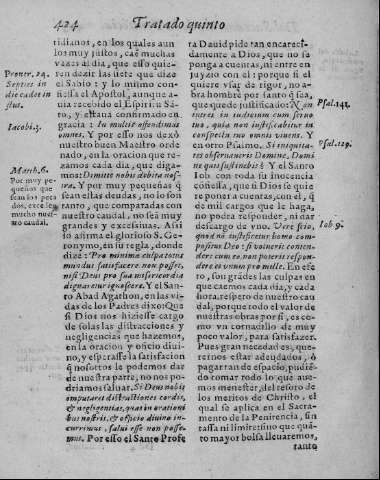 424 Tratado quinto
tidianos, en los quales aun
los muy justos, caẽ muchas
vezes al dia, que esso quie-
ren dezir las siete que dize
el Sabio: y lo mismo con-
fiessa el Apostol, aunque a-
uia recebido el Espiritu Sã-
to, y estaua confirmado en
gracia: In multis offendimus
omnes. Y por esso nos dexò
nuestro buen Maestro orde
nado, en la oracion que re-
zamos cada dia, que diga-
mos: Demitte nobis debita nos-
tra. Y por muy pequeñas q̃
sean estas deudas, no lo son
tanto, que comparadas con
nuestro caudal, no seã muy
grandes y excessiuas. Assi
lo afirma el glorioso S. Ge-
ronymo, en su regla, donde
dize: Pro minima culpa totus
mundus satisfacere non posset,
nisi Deus pro sua misericordia
dignaretur ignoscere. Y el San-
to Abad Agathon, en las vi-
das de los Padres dixo: Que
si Dios nos hiziesse cargo
de solas las distracciones y
negligencias que hazemos,
en la oracion y oficio diui-
no, y esperasse la satisfacion
q̃ nosotros le podemos dar
de nuestra parte, no nos po-
driamos saluar. Si Deus nobis
imputaret distractiones cordis,
& negligentias, quas in orationi
bus nostris, & officio diuino in-
currimus, salui esse non posse-
mus. Por esso el Santo Profe
Prouer. 24.
Septies in
die cadet iu
stus.
Iacobi. 3.
Matth. 6.
Por muy pe
queñas que
sean los peca
dos, exceden
mucho nues-
tro caudal.
ta Dauid pide tan encareci-
damente a Dios, que no se
ponga a cuentas, ni entre en
juyzio con el: porque si el
quiere vsar de rigor, no a-
brà hombre por santo q̃ sea,
que quede justificado: Non
intres in iudicium cum seruo
tuo, quia non iustificabitur in
conspectu tuo omnis viuens. Y
en otro Psalmo. Si iniquita-
tes obseruaueris Domine, Domi
ne quis sustinebit? Y el Santo
Iob con toda su inocencia
confiessa, que si Dios se quie
re poner a cuentas, con el, q̃
de mil cargos que le haga,
no podra responder, ni dar
descargo de vno. Vere scio,
quod nõ iustificetur homo com-
positus Deo: si voluerit conten-
dere cum eo, non poterit respon-
dere ei vnum pro mille. En efe-
to, son grãdes las culpas en
que caemos cada dia, y cada
hora, respeto de nuestro cau
dal, porque todo el valor de
nuestras obras por si, es co-
mo vn cornadillo de muy
poco valor, para satisfazer.
Pues gran necedad es, que-
rernos estar adeudados, o
pagar tan de espacio, pudiẽ-
do tomar todo lo que aue-
mos menester, del tesoro de
los meritos de Christo, el
qual se aplica en el Sacra-
mento de la Penitencia, sin
tassa ni limite: sino que quã-
to mayor bolsa lleuaremos,
tanto
Psal. 142.
Psal. 129.
Iob 9.